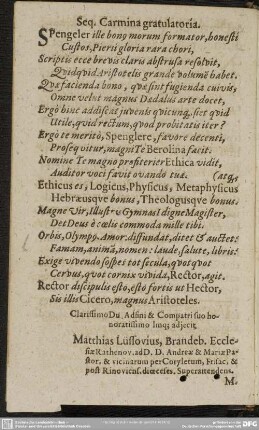 Seq. Carmina gratulatoria.
Spengeler ille bonq morum formator, honesti
Custos, Pierii gloria rara chori,
Scriptis ecce brevis claris abstrusa resolvit,
Quidquid Aristotelis grande volumē habet.
Quæ facienda bono, quæ sint fugienda cuivis,
Omne velut magnus Dædalus arte docet,
Ergò hinc addiscat juvenis quicunq;, siet quid
Utile, quid rectum, quod probitatis iter?
Ergò te meritò, Spenglere, favore decenti,
Proseqvitur, magni Te Berolina facit.
Nomine Te magno profiterier Ethica vidit,
Auditor voci favit ovando tuæ. (atq;,
Ethicus es, Logicus, Physicus, Metaphysicus
Hebræusqve bonus, Theologusqve bonus.
Magne Vir, Illustris Gymnasî digne Magister,
Det Deus è cœlis commoda mille tibi.
Orbis, Olympo, Amor, diffundat, ditet & auctet:
Famam, animā, nomen: laude, salute, libris.
Exige vivendo sospes tot secula, quotqvot
Cervus, qvot cornix vivida, Rector, agit.
Rector discipulis esto, esto fortis ut Hector,
Sis illis Cicero, magnus Aristoteles.
Clarissimo Dn. Adfini & Compatri suo ho-
noratissimo
adjecit
Matthias Lussovius, Brandeb. Eccle-
siæ Rathenov. ad D. D. Andreæ & Mariæ Pa-
stor, & vicinarum per Coryletum, Frisac. &
post Rinovicus. dioeceses, Superattendens.
M.